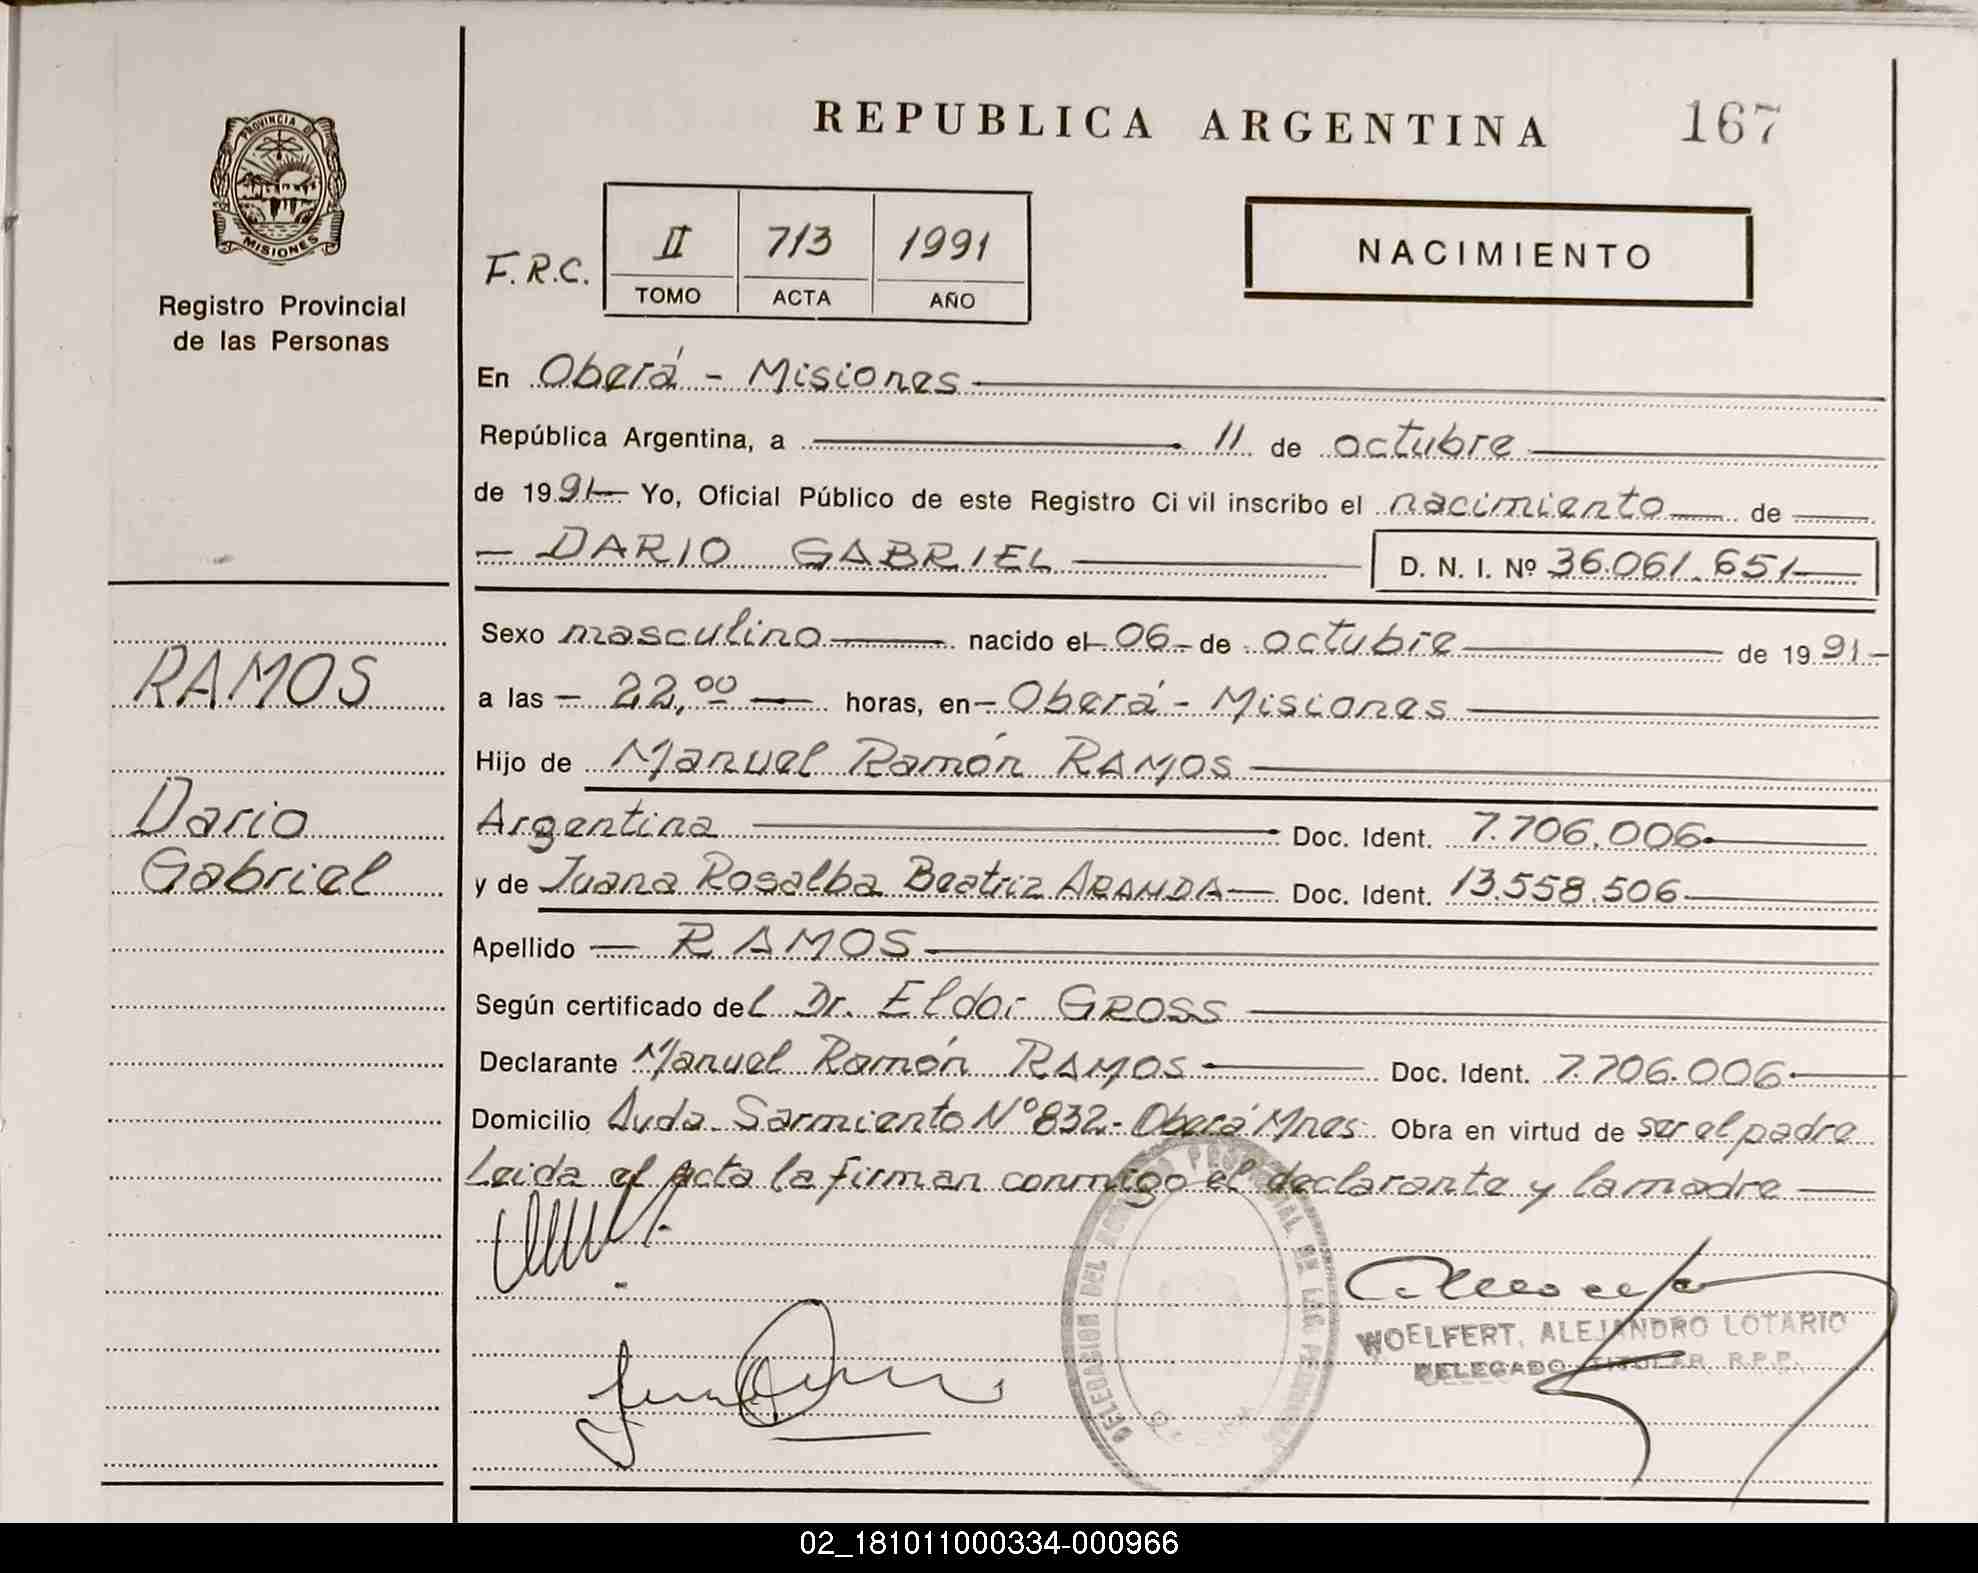 REPUBLICA ARGENTINA 167
PROVINCIA DE
MISIONES
Registro Provincial
de las Personas
F.R.C. II 713 1991
TOMO ACTA AÑO
NACIMIENTO
En Oberá - Misiones
República Argentina, a 11 de octubre
de 1991 Yo, Oficial Público de este Registro Civil inscribo el nacimiento de
DARIO GABRIEL D. N. I. Nº 36.061.651
Sexo masculino nacido el 06 de octubre de 1991
a las 22,00 horas, en Oberá - Misiones
Hijo de Manuel Ramón RAMOS
Argentina Doc. Ident. 7.706.006
y de Juana Rosalba Beatriz ARANDA Doc. Ident. 13.558.506
Apellido RAMOS
Según certificado del Dr. Eldor GROSS
Declarante Manuel Ramón RAMOS Doc. Ident. 7.706.006
Domicilio Avda. Sarmiento Nº 832 - Oberá Mnes. Obra en virtud de ser el padre
Leida el Acta la firman conmigo el declarante y la madre
RAMOS
Dario
Gabriel
DELEGACION DEL REGISTRO PROVINCIAL DE LAS PERSONAS
WOELFERT, ALEJANDRO LOTARIO
DELEGADO TITULAR R.P.P.
02_181011000334-000966